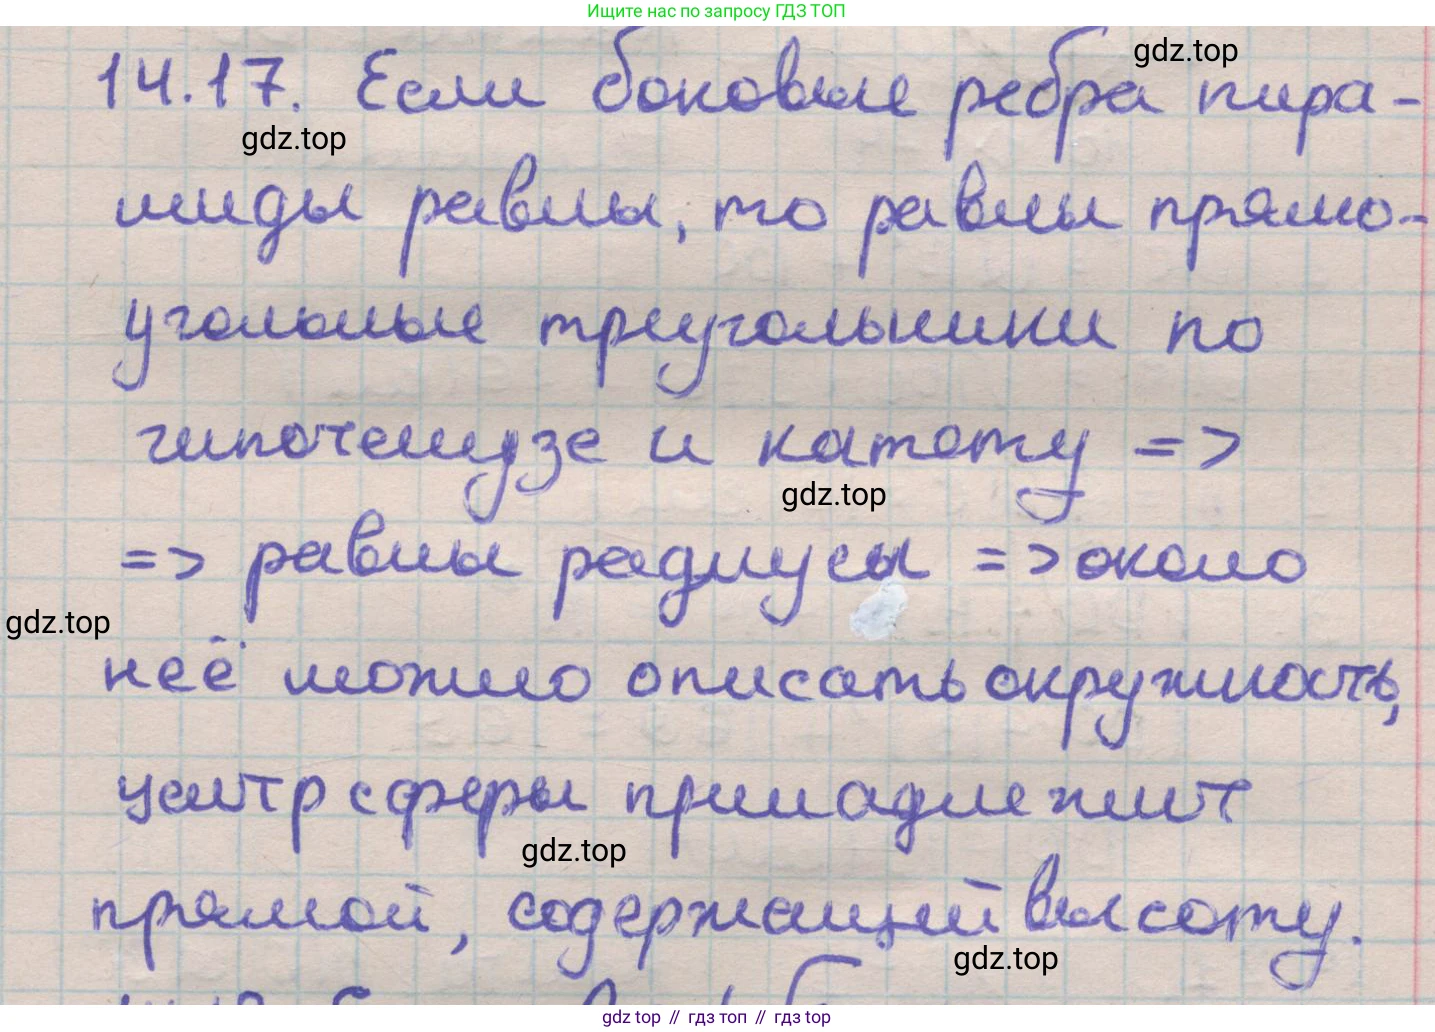 Ищите нас по запросу ГДЗ ТОП
gdz.top
14.17. Если боковые ребра пира-
gdz.top
миды равны, то равны прямо-
угольные треугольники по
гипотенузе и катету =>
gdz.top
=> равны радиусы => около
gdz.top
неё можно описать окружность,
центр сферы принадлежит
gdz.top
прямой, содержащей высоту.
gdz.top
gdz top // гдз топ // гдз top